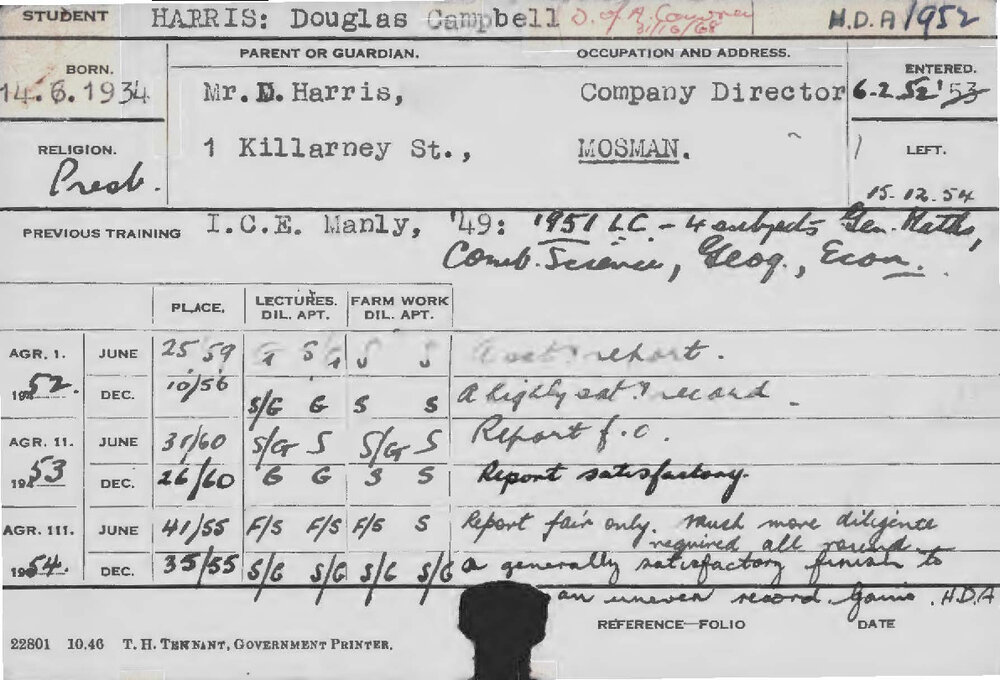 STUDENT HARRIS: Douglas Campbell D. of A. Cowra 31/10/68 H.D.A/1952
BORN. PARENT OR GUARDIAN. OCCUPATION AND ADDRESS. ENTERED.
14.6.1934 Mr. D. Harris, Company Director 6-2.52 '53
RELIGION. 1 Killarney St., MOSMAN. LEFT.
Presb. 15.12.54
PREVIOUS TRAINING I.C.E. Manly, '49: 1951 LC. - 4 subjects Gen. Maths,
Comb. Science, Geog., Econ.
PLACE. LECTURES. FARM WORK
DIL. APT. DIL. APT.
AGR. 1. JUNE 25/59 S S report.
1952. DEC. 10/56 S/G G S S A highly sat. record.
AGR. 11. JUNE 31/60 S/G S S/G S Report f.c.
1953 DEC. 26/60 G G S S Report satisfactory.
AGR. 111. JUNE 41/55 F/S F/S F/S S Report fair only. Much more diligence
required all round.
1954. DEC. 35/55 S/G S/G S/G S/G A generally satisfactory finish to
an uneven record. Gains H.D.A
REFERENCE—FOLIO DATE
22801 10.46 T. H. TENNANT, GOVERNMENT PRINTER.